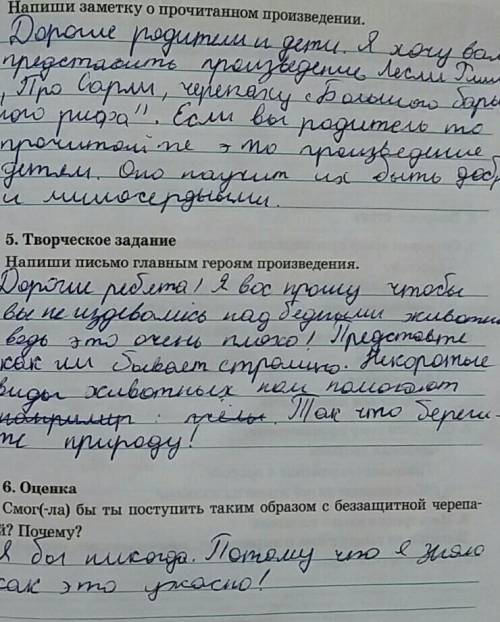 Напиши заметку о прочитанном произведении.
Дорогие родители и дети. Я хочу вам
представить произведение Лесли
„Про Сарли, черепаху с Большого барь
ного рифа". Если вы родитель то
прочитайте это произведение
детям. Оно научит их быть доб
и милосердными.
5. Творческое задание
Напиши письмо главным героям произведения.
Дорогие ребята! Я вас прошу чтобы
вы не издевались над бедными животны
ведь это очень плохо! Представте
как им бывает страшно. Некоротые
виды животных нам помогают
например: пчёлы. Так что береги-
те природу!
6. Оценка
Смог(-ла) бы ты поступить таким образом с беззащитной черепа-
й? Почему?
Я бы никогда. Потому что я знаю
как это ужасно!